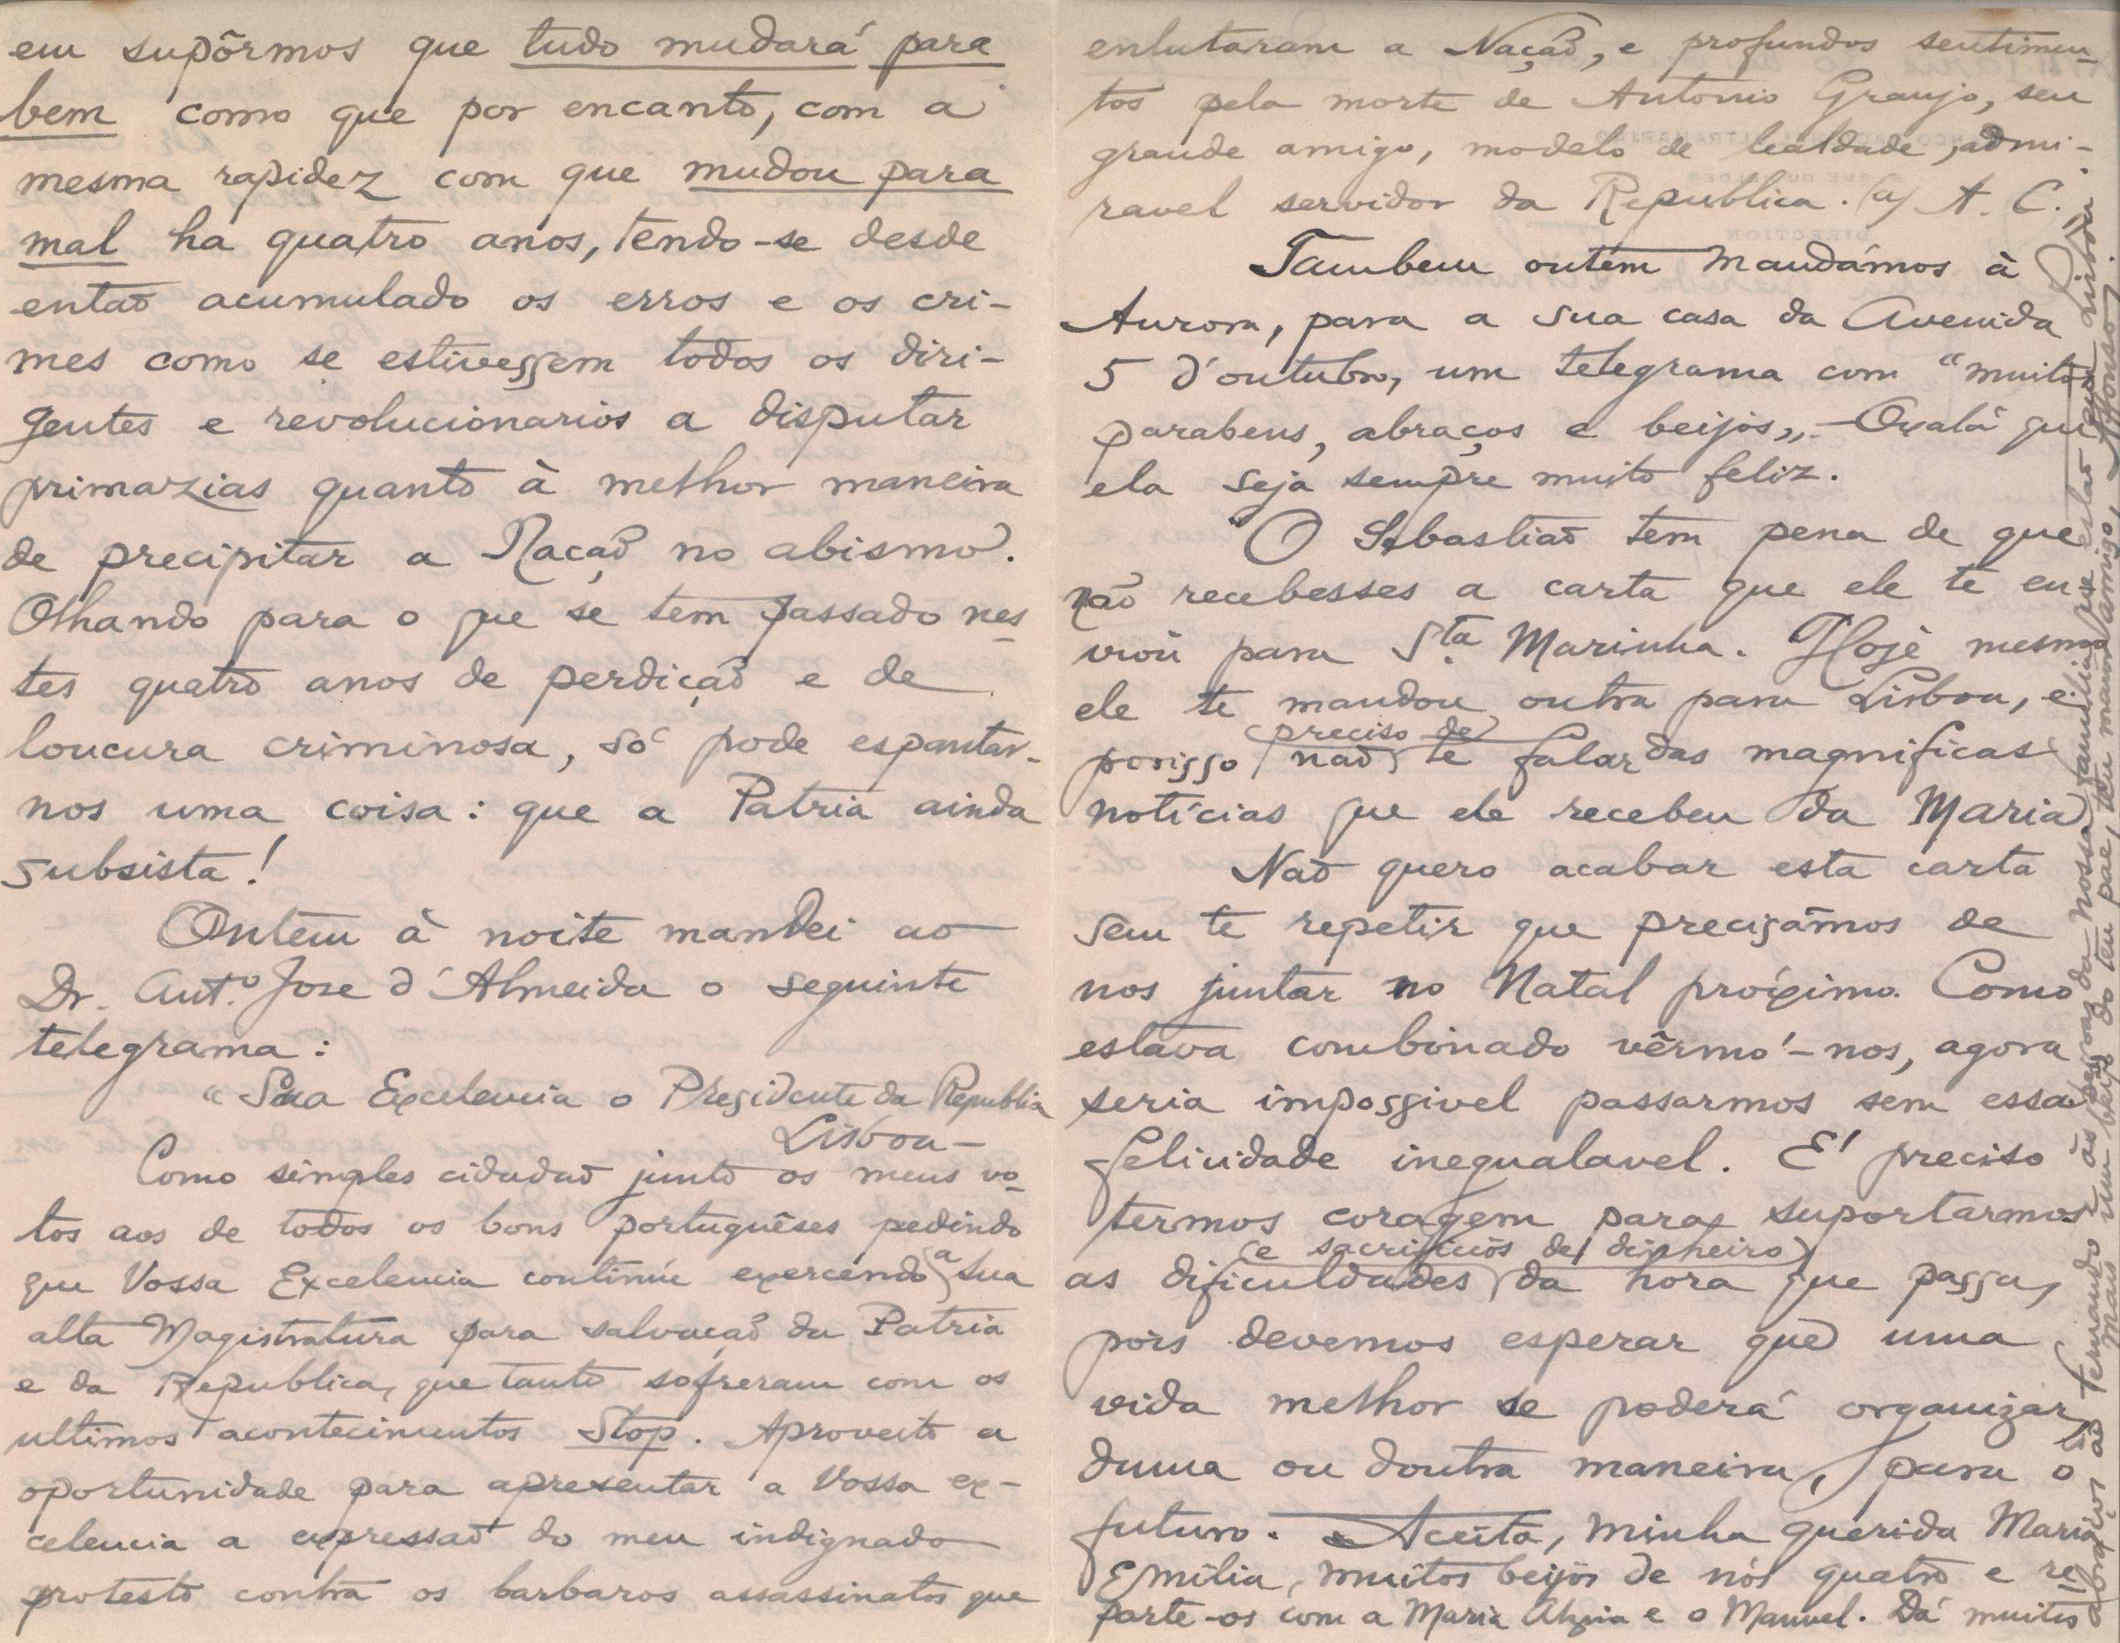 em supôrmos que tudo mudará para
bem como que por encanto, com a
mesma rapidez com que mudou para
mal ha quatro anos, tendo-se desde
então acumulado os erros e os cri-
mes como se estivessem todos os diri-
gentes e revolucionarios a disputar
primazias quanto à melhor maneira
de precipitar a Nação no abismo.
Olhando para o que se tem passado nes-
tes quatro anos de perdição e de
loucura criminosa, só pode espantar-
nos uma coisa: que a Patria ainda
subsista!
Ontem à noite mandei ao
Dr. Antº. Jose d'Almeida o seguinte
telegrama:
"Sua Excelencia o Presidente da Republica
Lisboa-
Como simples cidadão junto os meus vo-
tos aos de todos os bons portuguêses pedindo
que Vossa Excelencia continúe exercendo a sua
alta Magistratura para salvação da Patria
e da Republica, que tanto sofreram com os
ultimos acontecimentos Stop. Aproveito a
oportunidade para apresentar a Vossa ex-
celencia a expressão do meu indignado
protesto contra os barbaros assassinatos que
enlutaram a Nação, e profundos sentimen-
tos pela morte de Antonio Granjo, seu
grande amigo, modelo de lealdade, admi-
ravel servidor da Republica. (a) A. C.
Tambem ontem mandámos à
Aurora, para a sua casa da Avenida
5 d'outubro, um telegrama com "muitos
parabens, abraços e beijos„. Oxalá que
ela seja sempre muito feliz.
O Sebastião tem pena de que
não recebesses a carta que ele te en-
viou para Sta. Marinha. Hoje mesmo
ele te mandou outra para Lisboa, e
porisso não (preciso de) te falar das magnificas
notícias que ele recebeu da Maria
Não quero acabar esta carta
sem te repetir que precisâmos de
nos juntar no Natal próximo. Como
estava combinado vêrmo'-nos, agora
seria impossivel passarmos sem essa
felicidade inegualavel. E' preciso
termos coragem para suportarmos
as dificuldades (e sacrificios de dinheiro) da hora que passa,
pois devemos esperar que uma
vida melhor se poderá organizar,
duma ou doutra maneira, para o
futuro. Aceita, minha querida Maria
Emilia, muitos beijos de nós quatro e re-
parte-os com a Maria Alzira e o Manuel. Dá muitos
abraços ao Fernando e às pessoas da nossa familia que estão em Lisboa.
Mais um beijo do teu pae, teu maior amigo, Afonso.